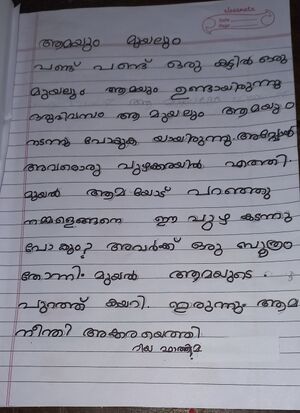 classmate
Date
Page
ആമയും മുയലും
പണ്ട് പണ്ട് ഒരു കാട്ടിൽ ഒരു
മുയലും ആമയും ഉണ്ടായിരുന്നു
ഒരുദിവസം ആ മുയലും ആമയും
നടന്നു പോയുക യായിരുന്നു. അപ്പോൾ
അവരൊരു പുഴക്കരയിൽ എത്തി.
മുയൽ ആമ യോട് പറഞ്ഞു
നമ്മളെങ്ങനെ ഈ പുഴ കടന്നു
പോകും? അവർക്ക് ഒരു സൂത്രം
തോന്നി. മുയൽ ആമയുടെ
പുറത്ത് കയറി. ഇരുന്നും ആമ
നീന്തി അക്കര യെത്തി
റിയ ഫാത്തിമ